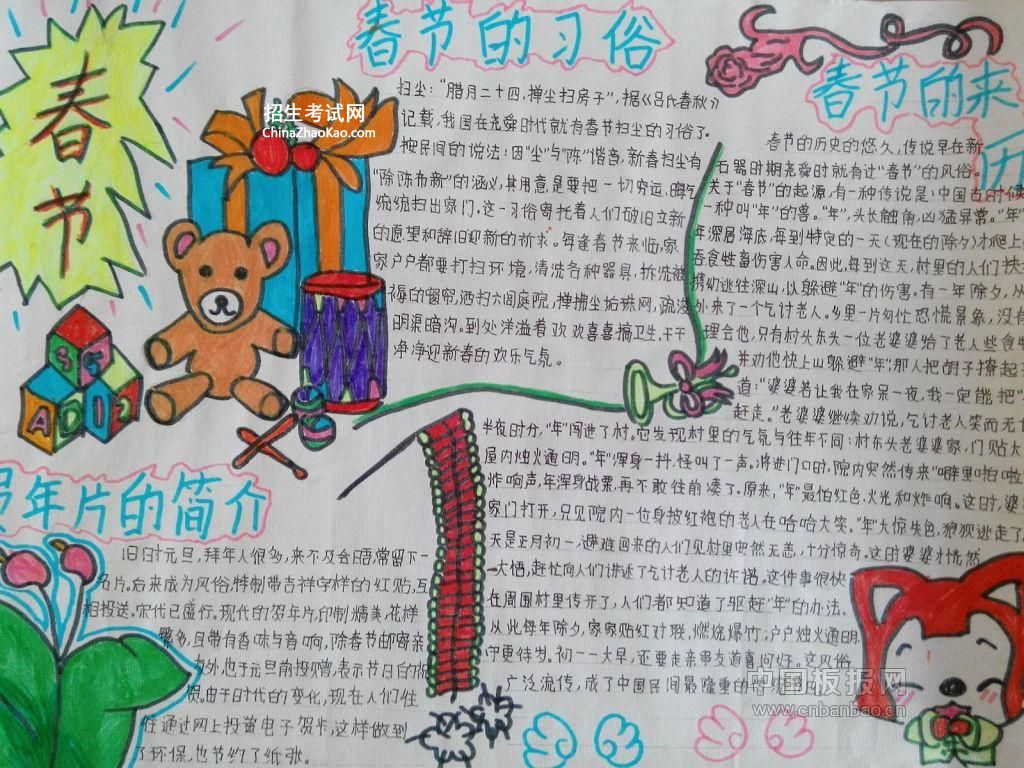 春节
春节的习俗
招生考试网
ChinaZhaoKao.com
扫尘：“腊月二十四，掸尘扫房子”，据《吕氏春秋》
记载，我国在尧舜时代就有春节扫尘的习俗了。
按民间的说法：因“尘”与“陈”谐音，新春扫尘有
“除陈布新”的涵义，其用意是要把一切穷运、晦气
统统扫出家门。这一习俗寄托着人们破旧立新
的愿望和辞旧迎新的祈求。每逢春节来临，家
家户户都要打扫环境，清洗各种器具，拆洗被
褥的窗帘，洒扫六闾庭院，掸拂尘垢蛛网，疏浚
明渠暗沟。到处洋溢着欢欢喜喜搞卫生、干干
净净迎新春的欢乐气氛。
春节的来
历
春节的历史的悠久，传说早在新
石器时期尧舜时就有过“春节”的风俗。
关于“春节”的起源，有一种传说是：中国古时候
一种叫“年”的兽。“年”，头长触角，凶猛异常。“年”
年深居海底，每到特定的一天（现在的除夕）才爬上
吞食牲畜伤害人命。因此，每到这天，村里的人们扶老
携幼逃往深山，以躲避“年”的伤害。有一年除夕，从
外来了一个乞讨老人。乡里一片匆忙恐慌景象，没有
理会他，只有村头东头一位老婆婆给了老人些食物
并劝他快上山躲避“年”，那人把胡子撩起
道：“婆婆若让我在家呆一夜，我一定能把“
赶走。”老婆婆继续劝说，乞讨老人笑而无
半夜时分，“年”闯进了村。它发现村里的气氛与往年不同：村东头老婆婆家，门贴大
屋内烛火通明。“年”浑身一抖，怪叫了一声。将进门口时，院内突然传来“噼里啪啦
炸响声，年浑身战栗，再不敢往前凑了。原来，“年”最怕红色，火光和炸响。这时，婆
家门打开，只见院内一位身披红袍的老人在哈哈大笑。“年”大惊失色，狼狈逃走了
天是正月初一，避难回来的人们见村里安然无恙，十分惊奇。这时婆婆才恍然
大悟，赶忙向人们讲述了乞讨老人的许诺。这件事很快
在周围村里传开了，人们都知道了驱赶“年”的办法。
从此每年除夕，家家贴红对联，燃放爆竹；户户烛火通明
守更待岁。初一一大早，还要走亲串友道喜问好。这风俗
广泛流传，成了中国民间最隆重的传统
年片的简介
旧时元旦，拜年人很多，来不及会晤常留下一
名片。后来成为风俗，特制带吉祥字样的红贴，互
相报送。宋代已盛行。现代的贺年片印制精美，花样
繁多，且带有香味与音响，除春节邮寄亲
外，也于元旦前投赠，表示节日的祝
愿。由于时代的变化，现在人们往
往通过网上投递电子贺卡，这样做到
了环保，也节约了纸张。
中国板报网
www.cnbanbao.cn